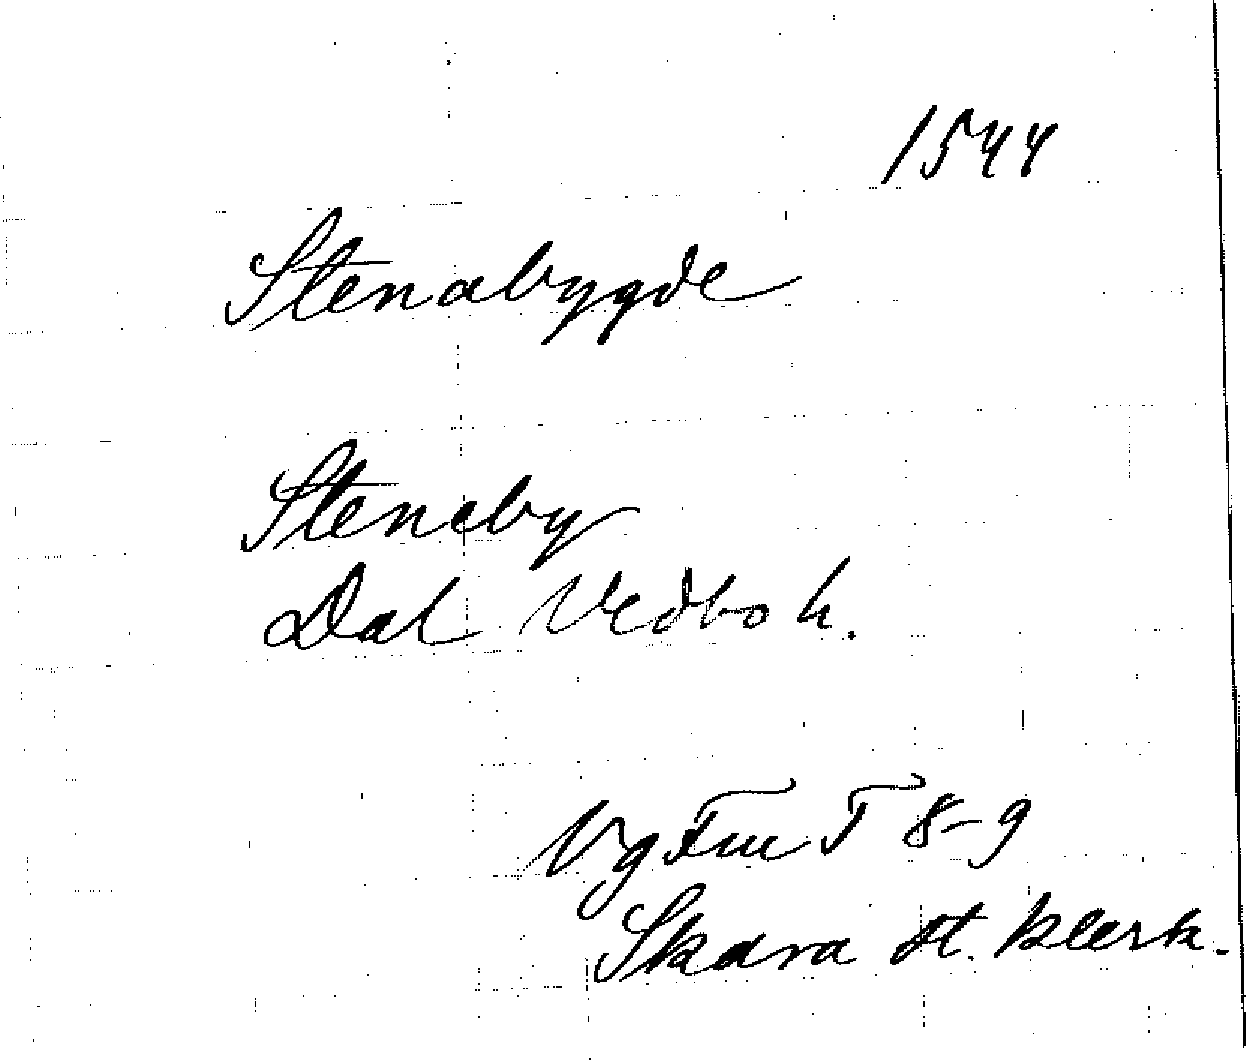 1544
Stenabygde
Steneby
Dal Vedbo h.
Vg Fru T 8-9
Skara st. klerk.